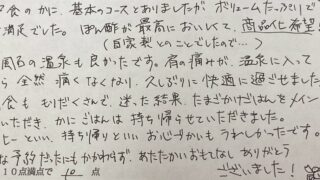 夕食のかに、基本のコースとありましたが ボリュームたっぷりで
満足でした。ぽん酢が最高においしくて、商品化希望!
(自家製とのことでしたので…)
温泉も良かったです。肩の痛みが、温泉に入って
から 全然 痛くなくなり、久しぶりに快適に過ごせました
食も もりだくさんで、迷った結果、たまごかけごはんをメイン
いただき、かに ごはんは 持ち帰らせていただきました。
ヒーといい、持ち帰りといい お心づかいも うれしかったです。
な予約だったにもかかわらず、あたたかいおもてなし ありがとう
10点満点で 10 点 ございました!